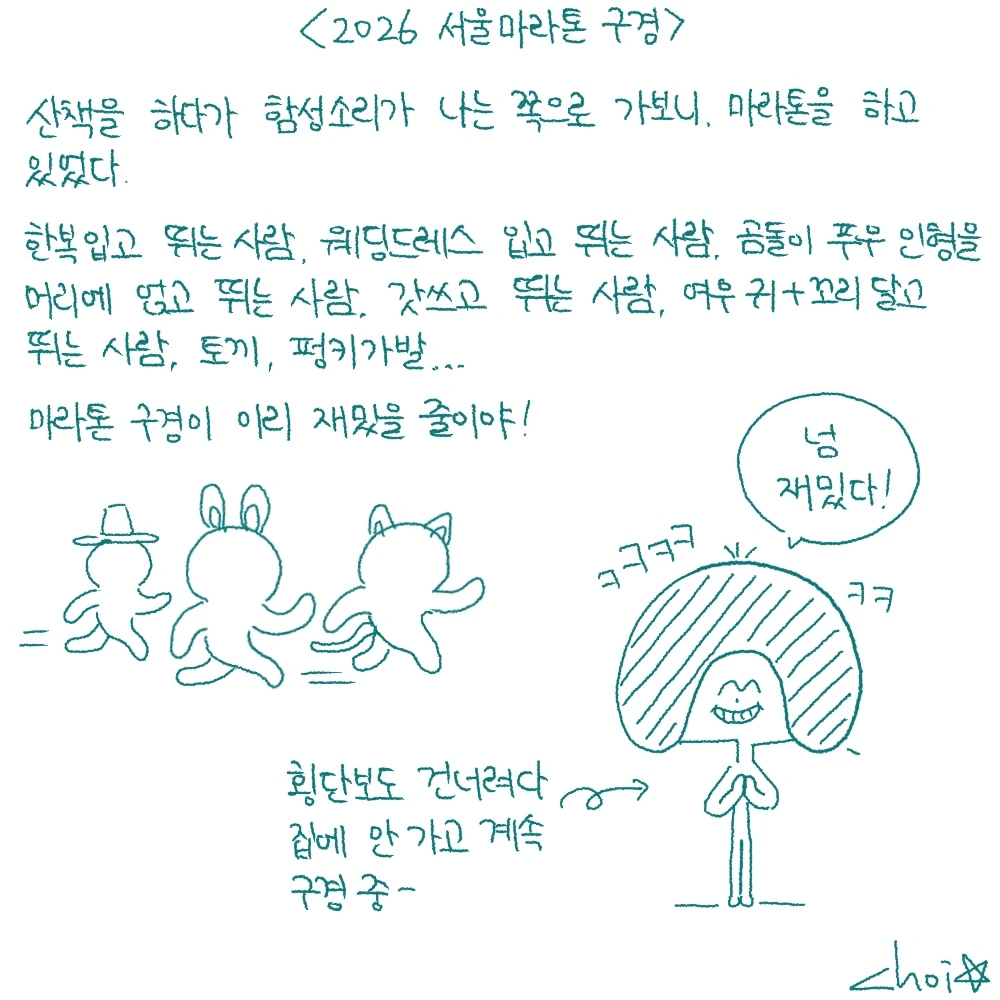 <2026 서울마라톤 구경>
산책을 하다가 함성소리가 나는 쪽으로 가보니, 마라톤을 하고
있었다.
한복입고 뛰는 사람, 웨딩드레스 입고 뛰는 사람, 곰돌이 푸우 인형을
머리에 얹고 뛰는 사람, 갓쓰고 뛰는 사람, 여우 귀+꼬리 달고
뛰는 사람, 토끼, 펑키가발...
마라톤 구경이 이리 재밌을 줄이야!
넘
재밌다!
ㅋㅋㅋㅋ
ㅋㅋ
횡단보도 건너려다
집에 안 가고 계속
구경 중~
choi